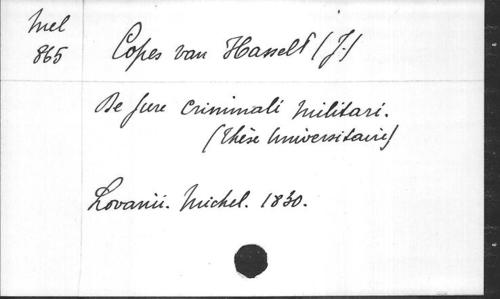 Mel
865
Copes van Hasselt (J.)
De Jure criminali militari.
(Thèse Universitaire)
Lovanii. Michel. 1830.